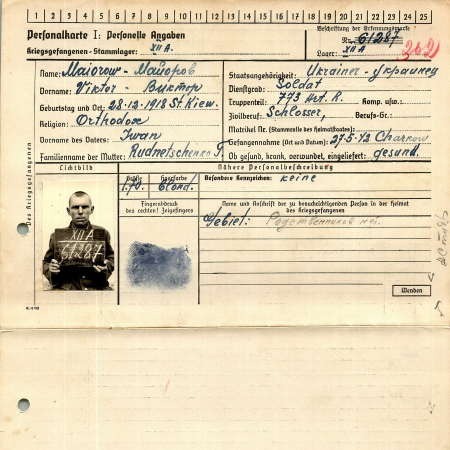 1 2 3 4 5 6 7 8 9 10 11 12 13 14 15 16 17 18 19 20 21 22 23 24 25
Personalkarte I: Personelle Angaben
Beschriftung der Erkennungsmarke
Nr. 61287
Kriegsgefangenen-Stammlager: XII A.
Lager: XII A
262
Des Kriegsgefangenen
Name: Maiorow - Майоров
Staatsangehörigkeit: Ukrainer - Украинец
Vorname: Viktor - Виктор
Dienstgrad: Soldat
Geburtstag und Ort: 28.12.1918 St. Kiew.
Truppenteil: 773 Art. R. Komp. usw.:
Religion: Orthodox
Zivilberuf: Schlosser, Berufs-Gr.:
Vorname des Vaters: Iwan
Matrikel Nr. (Stammrolle des Heimatstaates):
Gefangennahme (Ort und Datum): 27.5.42 Charkow
Familienname der Mutter: Rudnetschenko T.
Ob gesund, krank, verwundet, eingeliefert: gesund.
Lichtbild
Nähere Personalbeschreibung
Größe
Haarfarbe
Besondere Kennzeichen: keine
1.70. Blond.
Fingerabdruck
des rechten! Zeigefingers
Name und Anschrift der zu benachrichtigenden Person in der Heimat
des Kriegsgefangenen
Gebiet: Родственников нет.
XII A
61287
Wenden